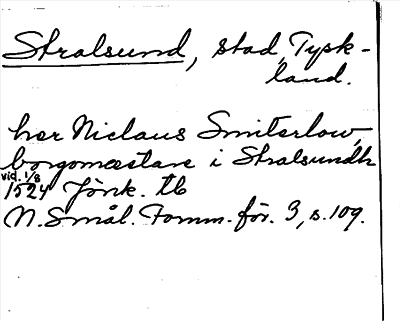 Stralsund, stad, Tysk-
land.
her Niclaus Smiterlow,
borgomestare i Stralsundh
vid. 1/8
1524 Jönk. tb
N. Smål. Fornm. för. 3, s. 109.